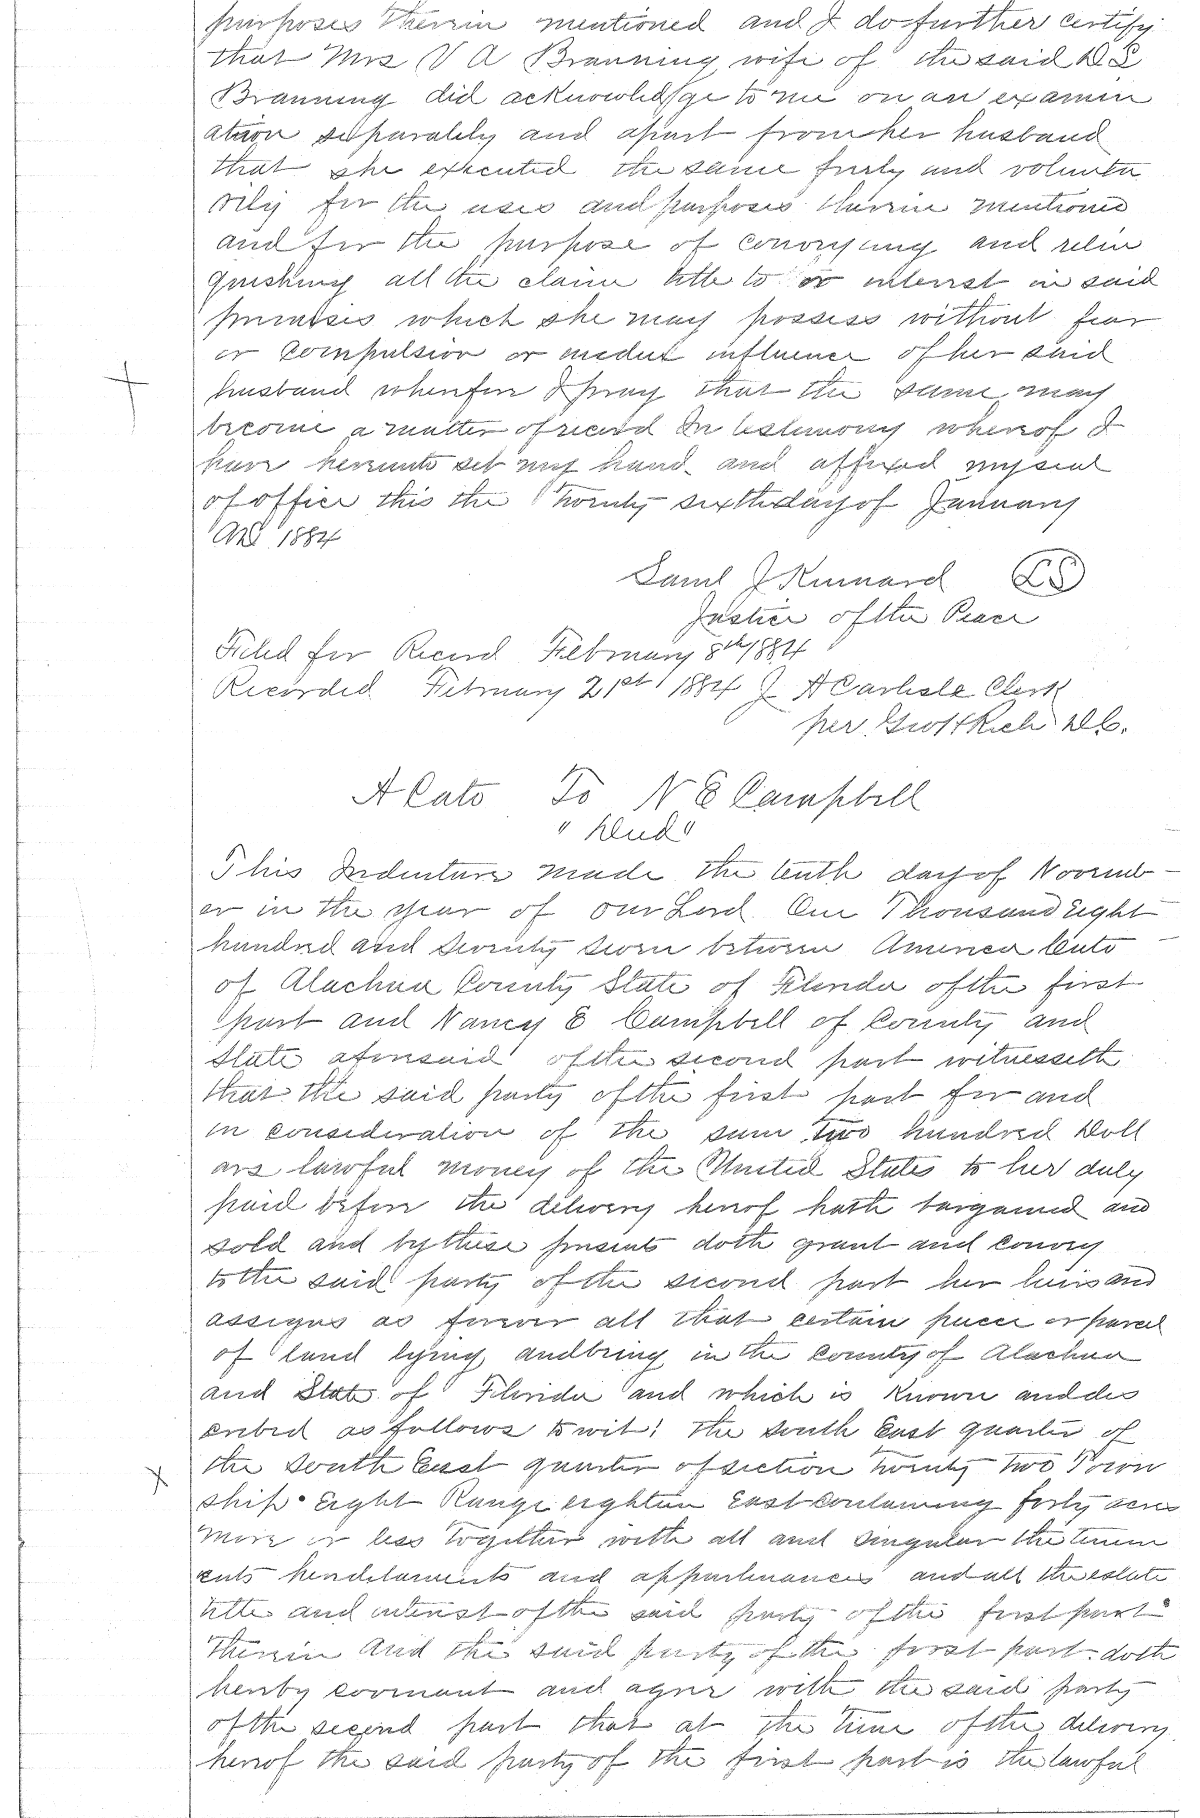 purposes therein mentioned and I do further certify
that Mrs V A Branning wife of the said D L
Branning did acknowledge to me on an examin
ation separately and apart from her husband
that she executed the same freely and volunta
rily for the uses and purposes therein mentioned
and for the purpose of conveying and relin
quishing all the claim title to or interest in said
premises which she may possess without fear
or compulsion or undue influence of her said
husband wherefore I pray that the same may
become a matter of record In testimony whereof I
have hereunto set my hand and affixed my seal
of office this the Twenty sixth day of January
AD 1884
Saml J Kinnard LS
Justice of the Peace
Filed for Record February 8th 1884
Recorded February 21st 1884 J A Carlisle Clerk
per Geo H Rich D.C.
A Cato To N E Campbell
"Deed"
This Indenture made the tenth day of Novemb
er in the year of our Lord One Thousand Eight
hundred and Seventy seven between America Cato
of Alachua County State of Florida of the first
part and Nancy E Campbell of County and
State aforesaid of the second part witnesseth
that the said party of the first part for and
in consideration of the sum two hundred Doll
ars lawful money of the United States to her duly
paid before the delivery hereof hath bargained and
sold and by these presents doth grant and convey
to the said party of the second part her heirs and
assigns as forever all that certain piece or parcel
of land lying and being in the County of Alachua
and State of Florida and which is known and des
cribed as follows to wit: the South East quarter of
the South East quarter of section twenty two Town
ship Eight Range eighteen East containing forty acres
more or less together with all and singular the tenem
ents hereditaments and appurtenances and all the estate
title and interest of the said party of the first part
Therein And the said party of the first part doth
hereby covenant and agree with the said party
of the second part that at the time of the delivery
hereof the said party of the first part is the lawful